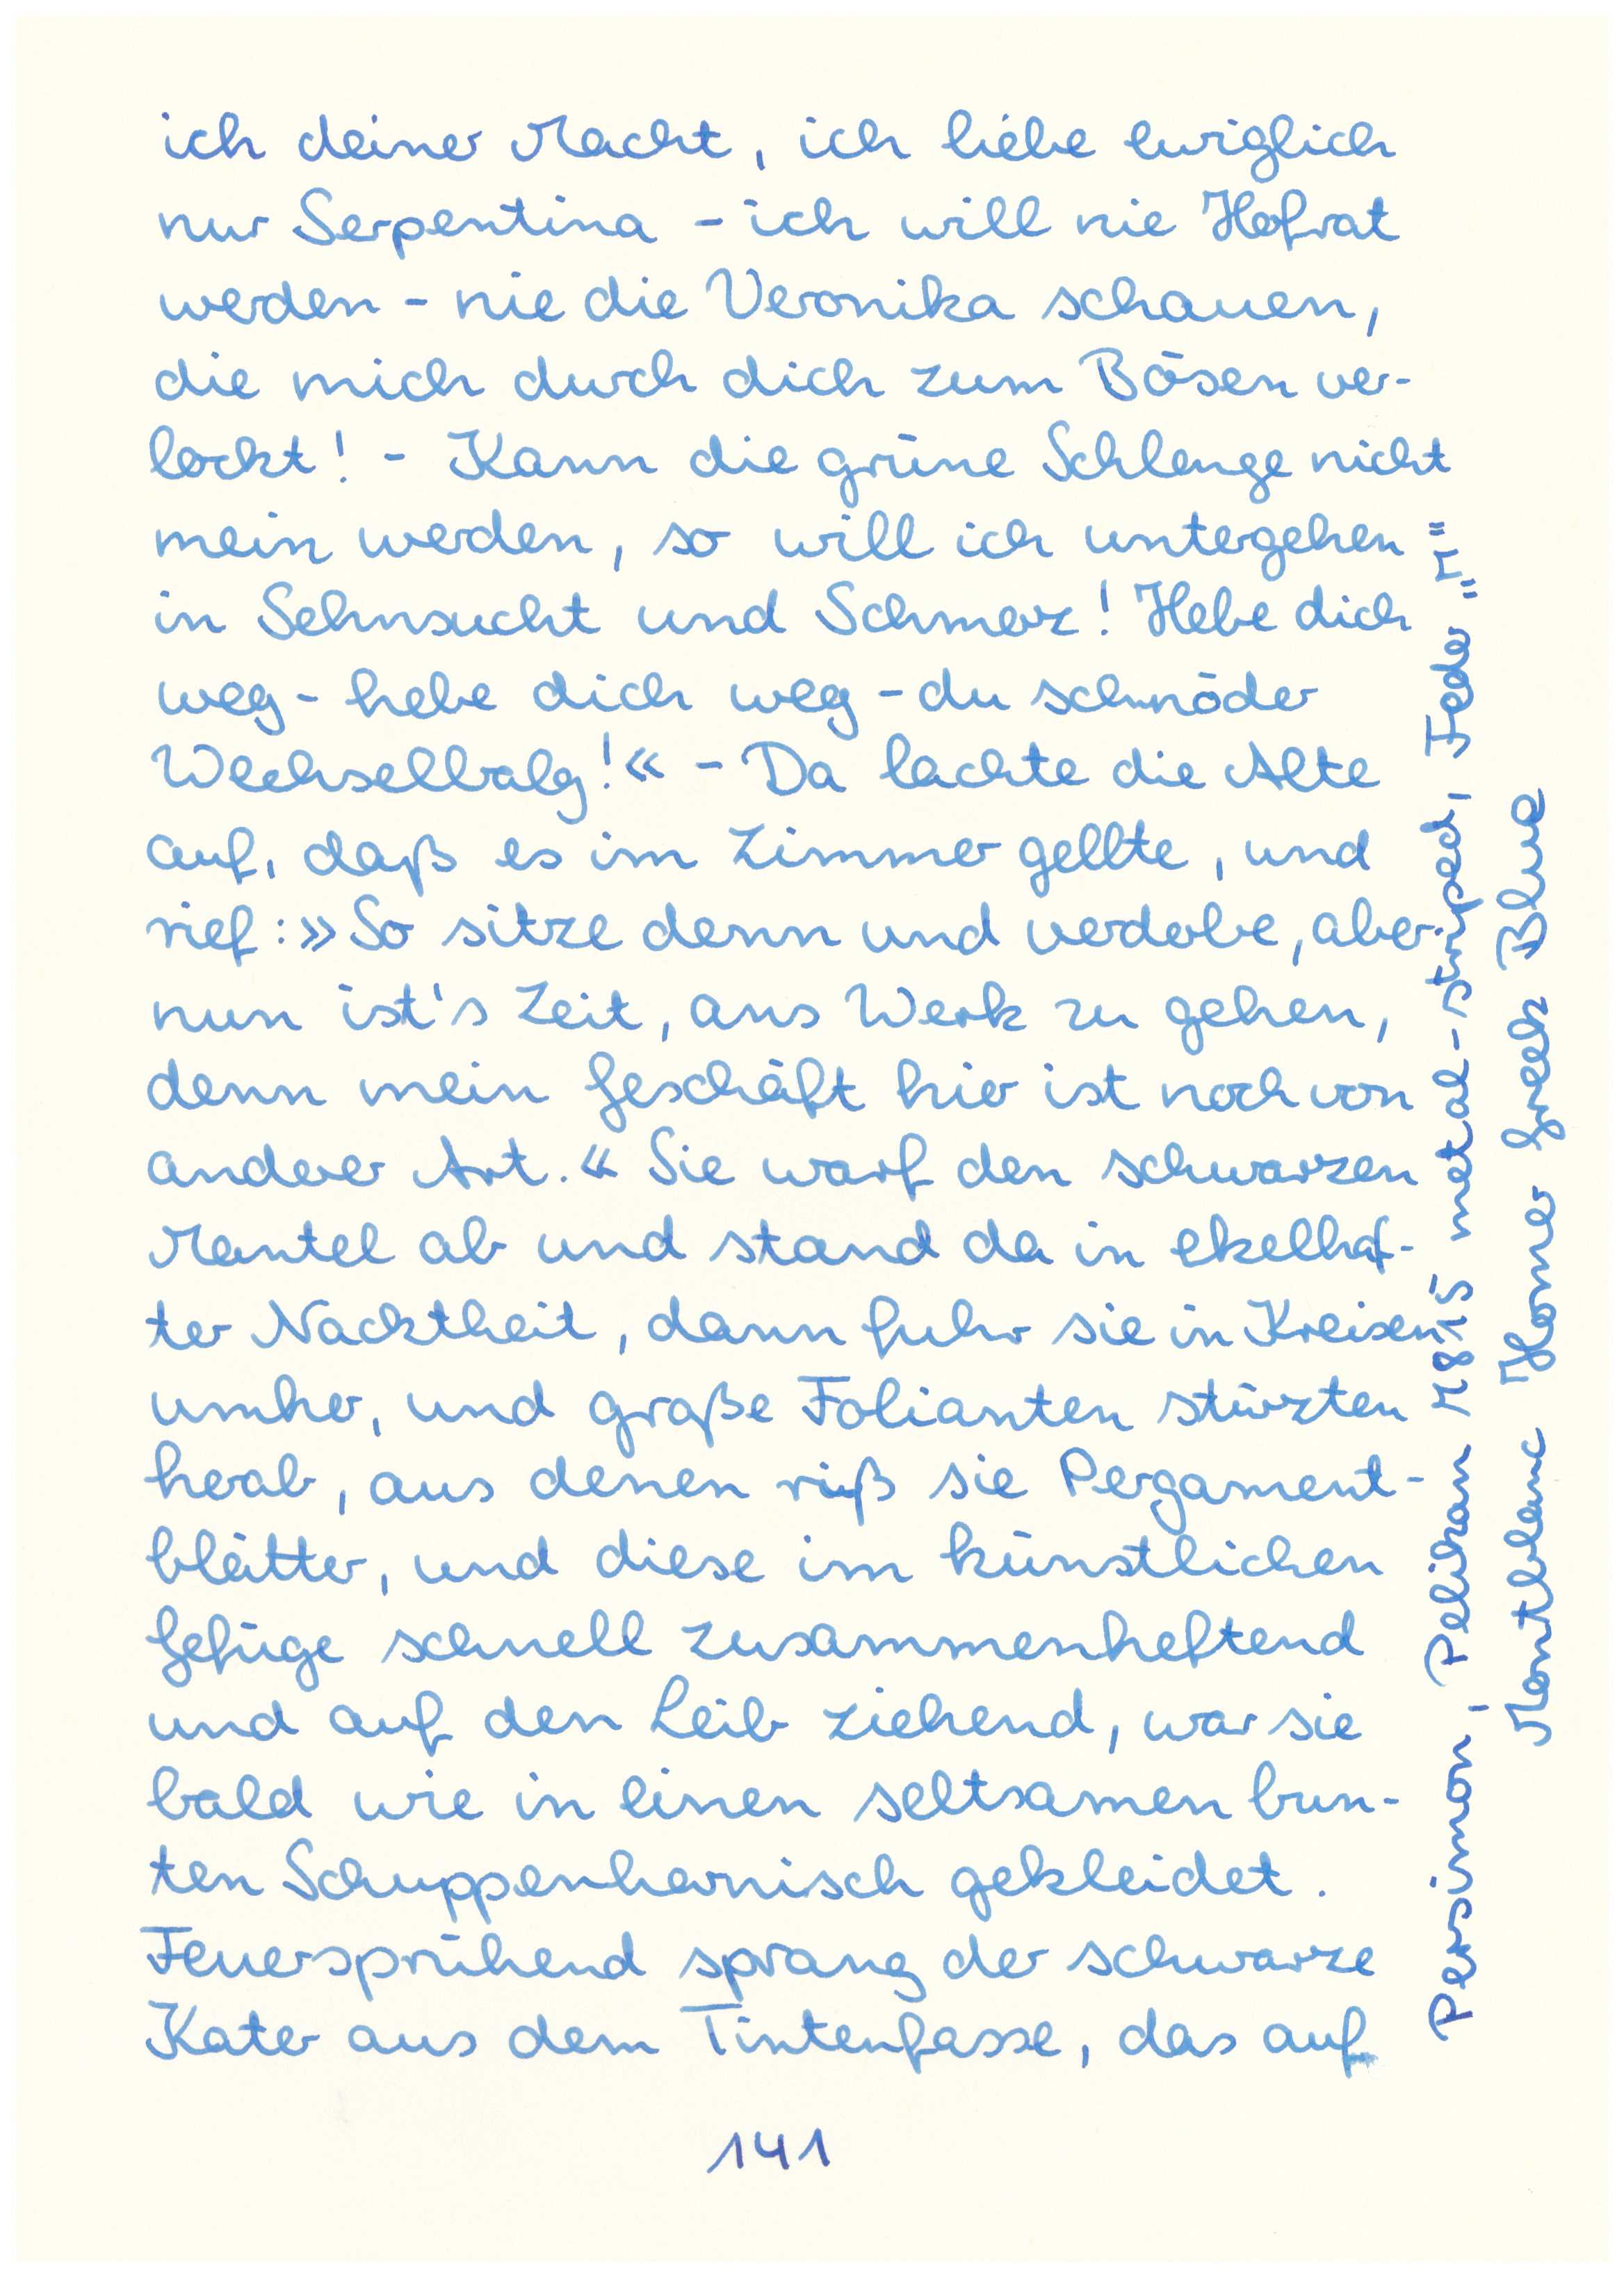 ich deiner Macht, ich liebe ewiglich
nur Serpentina – ich will nie Hofrat
werden – nie die Veronika schauen,
die mich durch dich zum Bösen ver-
lockt! – Kann die grüne Schlange nicht
mein werden, so will ich untergehen
in Sehnsucht und Schmerz! Hebe dich
weg – hebe dich weg – du schnöder
Wechselbalg!« – Da lachte die Alte
auf, daß es im Zimmer gellte, und
rief: »So sitze denn und verderbe, aber
nun ist's Zeit, ans Werk zu gehen,
denn mein Geschäft hier ist noch von
anderer Art.« Sie warf den schwarzen
Mantel ab und stand da in ekelhaf-
ter Nacktheit, dann fuhr sie in Kreisen
umher, und große Folianten stürzten
herab, aus denen riß sie Pergament-
blätter, und diese im künstlichen
Gefüge schnell zusammenheftend
und auf den Leib ziehend, war sie
bald wie in einen seltsamen bun-
ten Schuppenharnisch gekleidet.
Feuersprühend sprang der schwarze
Kater aus dem Tintenfasse, das auf
141
Persimmon, Pelikan M815 metal-striped, Feder "F"
Montblanc Homer Greek Blue